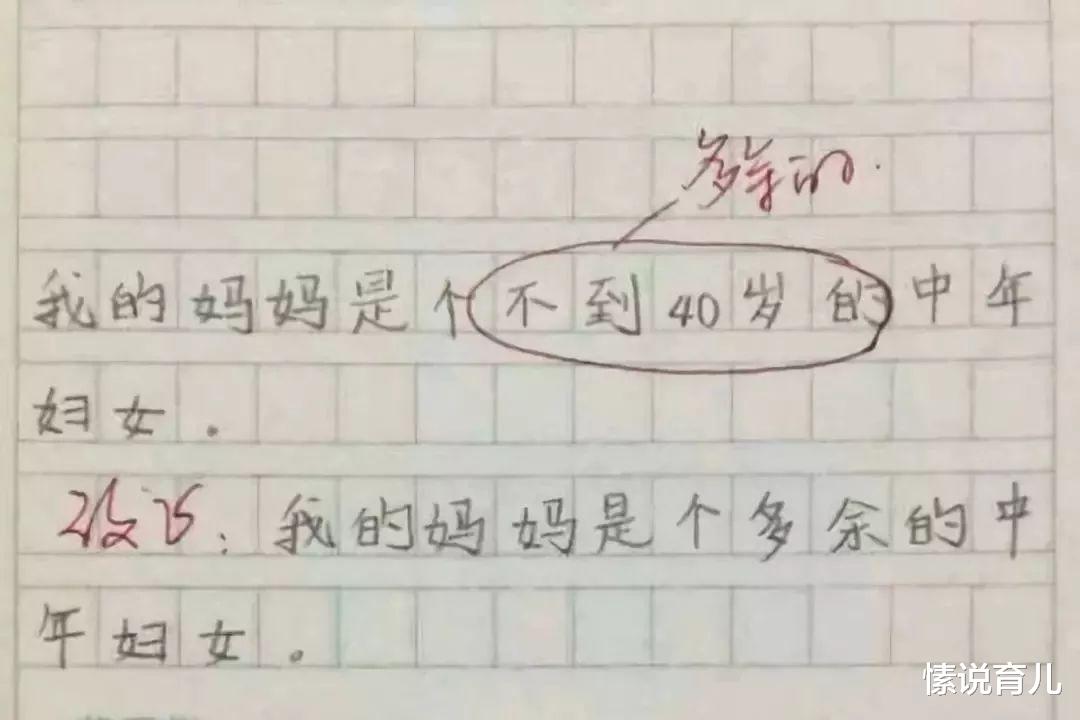 多余的.
我的妈妈是个不到40岁的中年
妇女.
改巧:我的妈妈是个多余的中
年妇女.
愫说育儿